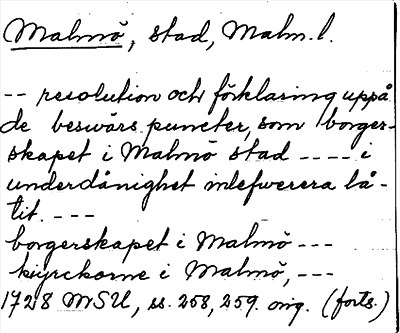 Malmö, stad, Malm. l.
-- resolution och förklaring uppå
de beswärs puncter, som borger-
skapet i Malmö stad ---- i
underdånighet inlefwerera lå-
tit. ---
borgerskapet i Malmö ---
kyrckorne i Malmö, ---
1728 MSU, ss. 258, 259. orig. (forts.)